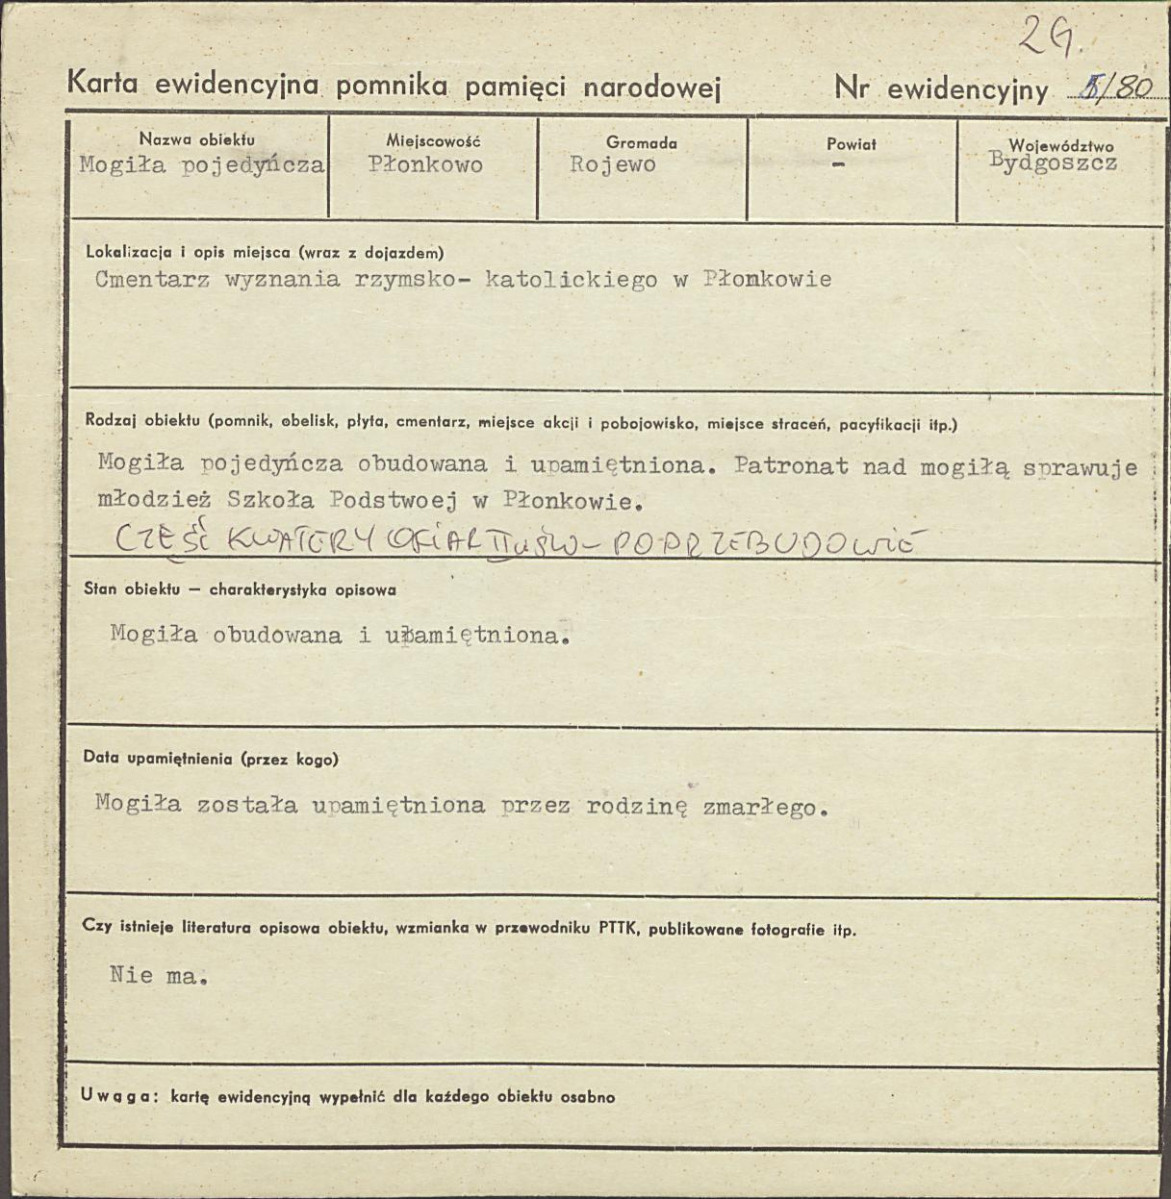 2G.
Karta ewidencyjna pomnika pamięci narodowej Nr ewidencyjny /80
Nazwa obiektu Miejscowość Gromada Powiat Województwo
Mogiła pojedyńcza Płonkowo Rojewo - Bydgoszcz
Lokalizacja i opis miejsca (wraz z dojazdem)
Cmentarz wyznania rzymsko- katolickiego w Płonkowie
Rodzaj obiektu (pomnik, obelisk, płyta, cmentarz, miejsce akcji i pobojowisko, miejsce straceń, pacyfikacji itp.)
Mogiła pojedyńcza obudowana i upamiętniona. Patronat nad mogiłą sprawuje
młodzież Szkoła Podstwoej w Płonkowie.
CZĘŚĆ KWATERY OFIAR II WŚW - PO PRZEBUDOWIE
Stan obiektu — charakterystyka opisowa
Mogiła obudowana i upamiętniona.
Data upamiętnienia (przez kogo)
Mogiła została upamiętniona przez rodzinę zmarłego.
Czy istnieje literatura opisowa obiektu, wzmianka w przewodniku PTTK, publikowane fotografie itp.
Nie ma.
Uwaga: kartę ewidencyjną wypełnić dla każdego obiektu osobno